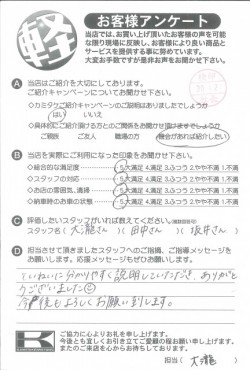 軽
お客様アンケート
当店では、お買い上げ頂いたお客様の声を可能
な限り現場に反映し、お客様により良い商品と
サービスを提供する事に努めています。
大変お手数ですが是非お声をお聞かせ下さい。
A 当店はご紹介を大切にしております。
ご紹介キャンペーンについてお聞かせ下さい。
はい いいえ
ご親族 ご友人 職場の方 機会があれば紹介したい
B 当店を実際にご利用になった印象をお聞かせ下さい。
◇総合的な満足度 5.大満足 4.満足 3.ふつう 2.やや不満 1.不満
◇スタッフの対応 5.大満足 4.満足 3.ふつう 2.やや不満 1.不満
◇お店の雰囲気、清掃 5.大満足 4.満足 3.ふつう 2.やや不満 1.不満
◇納車時のお車の状態 5.大満足 4.満足 3.ふつう 2.やや不満 1.不満
C 評価したいスタッフがいれば教えてください。
スタッフ名（大瀧さん）（田中さん）（坂井さん）
D 担当させて頂きましたスタッフへのご指導、ご指導メッセージを
お願いします。どうぞ応援メッセージもお願いします。
ていねいに分かりやすく説明していただき、ありがと
うございました
今後もよろしくお願い致します。
K
ご協力に心よりお礼を申し上げます。
今後とも宜しくお引き立てご愛顧の程お願い申し上げます。
またのご来店を心からお待ちしております。
担当（大瀧）